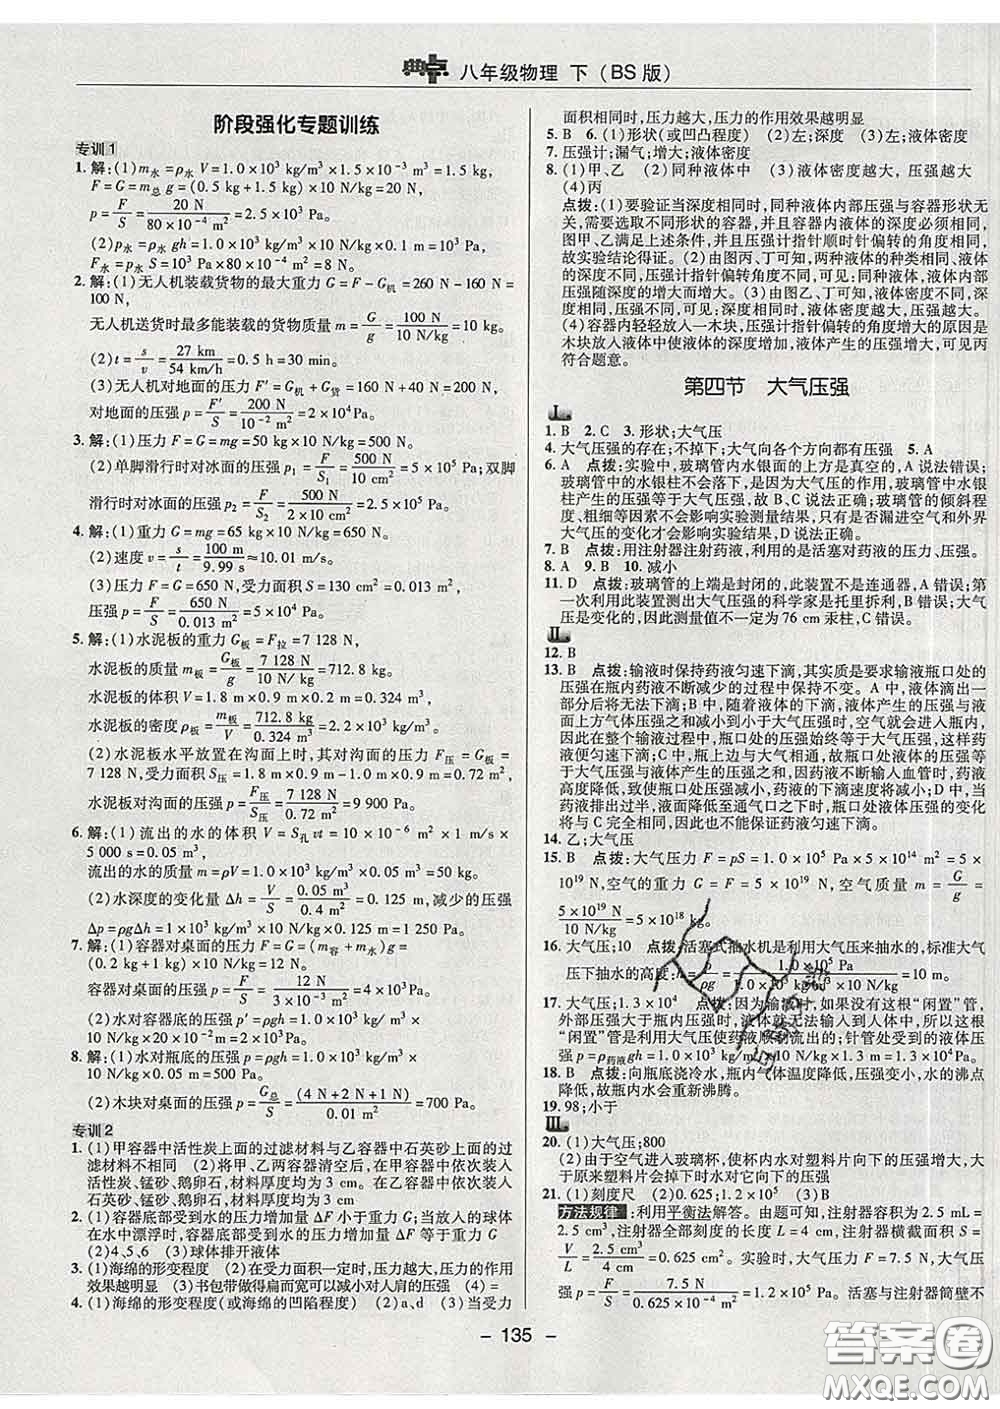 典中点 八年级物理 下（BS版）
阶段强化专题训练
专训1
1. 解：(1)m水＝ρ水V＝1.0×10³ kg/m³×1.5×10⁻³ m³＝1.5 kg,
F＝G＝m总g＝(0.5 kg＋1.5 kg)×10 N/kg＝20 N,
p＝F/S＝20 N/(80×10⁻⁴ m²)＝2.5×10³ Pa。
(2)p水＝ρ水gh＝1.0×10³ kg/m³×10 N/kg×0.1 m＝10³ Pa,
F水＝p水S＝10³ Pa×80×10⁻⁴ m²＝8 N。
2. 解：(1)无人机装载货物的最大重力G＝F－G机＝260 N－160 N＝
100 N,
无人机送货时最多能装载的货物质量m＝G/g＝100 N/(10 N/kg)＝10 kg。
(2)t＝s/v＝27 km/(54 km/h)＝0.5 h＝30 min。
(3)无人机对地面的压力F′＝G机＋G货＝160 N＋40 N＝200 N,
对地面的压强p＝F′/S＝200 N/(10⁻² m²)＝2×10⁴Pa。
3. 解：(1)压力F＝G＝mg＝50 kg×10 N/kg＝500 N。
(2)单脚滑行时对冰面的压强p₁＝F/S₁＝500 N/(10 cm²)＝5×10⁵Pa；双脚
滑行时对冰面的压强p₂＝F/S₂＝500 N/(2×10 cm²)＝2.5×10⁵Pa。
4. 解：(1)重力G＝mg＝65 kg×10 N/kg＝650 N。
(2)速度v＝s/t＝100 m/(9.99 s)≈10.01 m/s。
(3)压力F＝G＝650 N,受力面积S＝130 cm²＝0.013 m²,
压强p＝F/S＝650 N/(0.013 m²)＝5×10⁴ Pa。
5. 解：(1)水泥板的重力G板＝F拉＝7 128 N,
水泥板的质量m板＝G板/g＝7 128 N/(10 N/kg)＝712.8 kg,
水泥板的体积V＝1.8 m×0.9 m×0.2 m＝0.324 m³,
水泥板的密度ρ板＝m板/V＝712.8 kg/(0.324 m³)＝2.2×10³ kg/m³。
(2)水泥板水平放置在沟面上时,其对沟面的压力F压＝G板＝
7 128 N,受力面积S压＝1.8 m×0.9 m－1.0 m×0.9 m＝0.72 m²,
水泥板对沟面的压强p＝F压/S压＝7 128 N/(0.72 m²)＝9 900 Pa。
6. 解：(1)流出的水的体积V＝S孔vt＝10×10⁻⁶ m²×2 m/s×
5 000 s＝0.05 m³,
流出的水的质量m＝ρV＝1.0×10³ kg/m³×0.05 m³＝50 kg。
(2)水深度的变化量Δh＝V/S＝0.05 m³/(0.4 m²)＝0.125 m,减少的压强
Δp＝ρgΔh＝1.0×10³ kg/m³×10 N/kg×0.125 m＝1 250 Pa。
7. 解：(1)容器对桌面的压力F＝G＝(m容＋m水)g＝
(0.2 kg＋1 kg)×10 N/kg＝12 N,
容器对桌面的压强p＝F/S＝12 N/(3×10⁻³ m²)＝4×10³Pa。
(2)水对容器底的压强p′＝ρgh＝1.0×10³ kg/m³×
10 N/kg×20×10⁻² m＝2×10³ Pa。
8. 解：(1)水对瓶底的压强p＝ρgh＝1.0×10³ kg/m³×
10 N/kg×0.05 m＝500 Pa。
(2)木块对桌面的压强p＝G总/S＝(4 N＋2 N＋1 N)/(0.01 m²)＝700 Pa。
专训2
1. (1)甲容器中活性炭上面的过滤材料与乙容器中石英砂上面的过
滤材料不相同 (2)将甲、乙两容器清空后,在甲容器中依次装入
活性炭、锰砂、鹅卵石,材料厚度均为3 cm。在乙容器中依次装入
石英砂、锰砂、鹅卵石,材料厚度均为3 cm
2. (1)容器底部受到水的压力增加量ΔF小于重力G；当放入的球体
在水中漂浮时,容器底部受到水的压力增加量ΔF等于重力G
(2)4、5、6 (3)球体排开液体
3. (1)海绵的形变程度 (2)在受力面积一定时,压力越大,压力的作用
效果越明显 (3)书包带做得扁而宽可以减小对人肩的压强 (4)＝
4. (1)海绵的形变程度(或海绵的凹陷程度) (2)a、d (3)当受力
面积相同时,压力越大,压力的作用效果越明显
5. B 6. (1)形状(或凹凸程度) (2)左；深度 (3)左；液体密度
7. 压强计；漏气；增大；液体密度
8. (1)甲、乙 (2)同种液体中 (3)液体密度越大,压强越大
(4)丙
点拨：(1)要验证当深度相同时,同种液体内部压强与容器形状无
关,需要选取不同形状的容器,并且容器内液体的深度应相同,
图甲、乙满足上述条件,并且压强计指针顺时针偏转的角度相同,
故实验结论得证。(2)由图丙、丁可知,两种液体的种类相同、液体
的深度不同,压强计指针偏转角度不同,可见：同种液体,液体内
部压强随深度的增大而增大。(3)由图乙、丁可知,液体密度不同,深
度相同,压强不同,可见：深度相同时,液体密度越大,压强越大。
(4)容器内轻轻放入一木块,压强计指针偏转的角度增大的原因是
木块放入液体中使液体的深度增加,液体产生的压强增大,可见丙
符合题意。
第四节 大气压强
Ⅰ
1. B 2. C 3. 形状；大气压
4. 大气压强的存在；不掉下；大气向各个方向都有压强 5. A
6. A 点拨：实验中,玻璃管内水银面的上方是真空的,A说法错误；
玻璃管中的水银柱不会落下,是因为大气压的作用,玻璃管中水银
柱产生的压强等于大气压强,故B、C说法正确；玻璃管的倾斜程
度、粗细等因素不会影响实验测量结果,只有是否漏进空气和外界
大气压的变化才会影响实验结果,D说法正确。
7. B 点拨：用注射器注射药液,利用的是活塞对药液的压力、压强。
8. A 9. B 10. 减小
11. D 点拨：玻璃管的上端是封闭的,此装置不是连通器,A错误；第
一次利用此装置测出大气压强的科学家是托里拆利,B错误；大气
压是变化的,因此测量值不一定为76 cm汞柱,C错误。
Ⅱ
12. B
13. B 点拨：输液时保持药液匀速下滴,其实质是要求输液瓶口处的
压强在瓶内药液不断减少的过程中保持不变。A中,液体滴出一
部分后将无法下滴；B中,随着液体的下滴,液体产生的压强与液
面上方气体压强之和减小到小于大气压强时,空气就会进入瓶内,
因此在整个输液过程中,瓶口处的压强始终等于大气压强,这样药
液便匀速下滴；C中,瓶上边与大气相通,故瓶口处液体压强等于
大气压强与液体产生的压强之和,因药液不断输人血管时,药液高
度降低,致使瓶口处压强不断减小,药液的下滴速度减小；D中,当
药液排出过半,液面降低至通气口之下时,瓶口处液体压强的变化
将与C完全相同,因此也不能保证药液匀速下滴。
14. 乙；大气压
15. B 点拨：大气压力F＝pS＝1.0×10⁵ Pa×5×10¹⁴ m²＝5×
10¹⁹ N,空气的重力G＝F＝5×10¹⁹ N,空气质量m＝G/g＝
5×10¹⁹ N/(10 N/kg)＝5×10¹⁸ kg。
16. 大气压强；10 点拨：活塞式抽水机是利用大气压来抽水的,标准大气
压下抽水的高度：h＝p/ρg＝1.0×10⁵ Pa/(1.0×10³ kg/m³×10 N/kg)＝10 m。
17. 大气压；1.3×10⁴ 点拨：因为输液时,如果没有这根“闲置”管,
外部压强大于瓶内压强时,液体就无法输入到人体中,所以这根
“闲置”管是利用大气压使药液顺利流出的；针管处受到的液体压
强p＝ρ药液gh＝1.0×10³ kg/m³×10 N/kg×1.3 m＝1.3×10⁴Pa。
18. B 点拨：向瓶底浇冷水,瓶内气体温度降低,压强变小,水的沸点
降低,故瓶内水会重新沸腾。
19. 98；小于
Ⅲ
20. (1)大气压；800
(2)由于空气进入玻璃杯,使杯内水对塑料片向下的压强增大,大
于原来塑料片会掉下时水对它向下的压强
21. (1)刻度尺 (2)0.625；1.2×10⁵ (3)B
方法规律：利用平衡法解答。由题可知,注射器容积为2.5 mL＝
2.5 cm³,注射器全部刻度的长度L＝4 cm,注射器横截面积S＝
V/L＝2.5 cm³/(4 cm)＝0.625 cm²。实验时,大气压力F＝7.5 N,大气压
强p＝F/S＝7.5 N/(0.625×10⁻⁴ m²)＝1.2×10⁵ Pa。活塞与注射器筒壁不
－ 135 －
答案圈
MXQE.COM